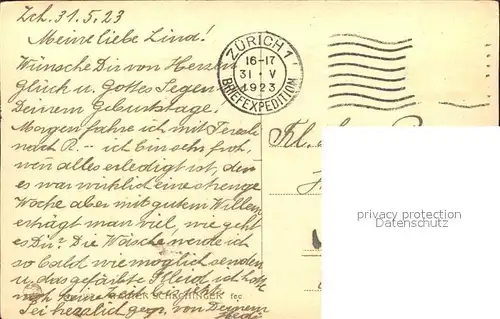 Zch. 31.5.23
Meine liebe Lind!
Wünsche Dir von Herzen
Glück u. Gottes Segen
Deinem Geburtstage!
Morgen fahre ich mit
nach R. -- ich bin sehr froh,
wen alles erledigt ist, den
es war wirklich eine strenge
Woche aber mit gutem Willen
erträgt man viel, wie geht
es Dir? Die Wäsche werde ich
so bald wie möglich senden
u. das gefärbte Kleid, ich
noch keine Zeit
Sei herzlich gegr. von Deinem
ZÜRICH 1
16-17
31 · V
1923
BRIEFEXPEDITION
Frl.
privacy protection
oldthing.de